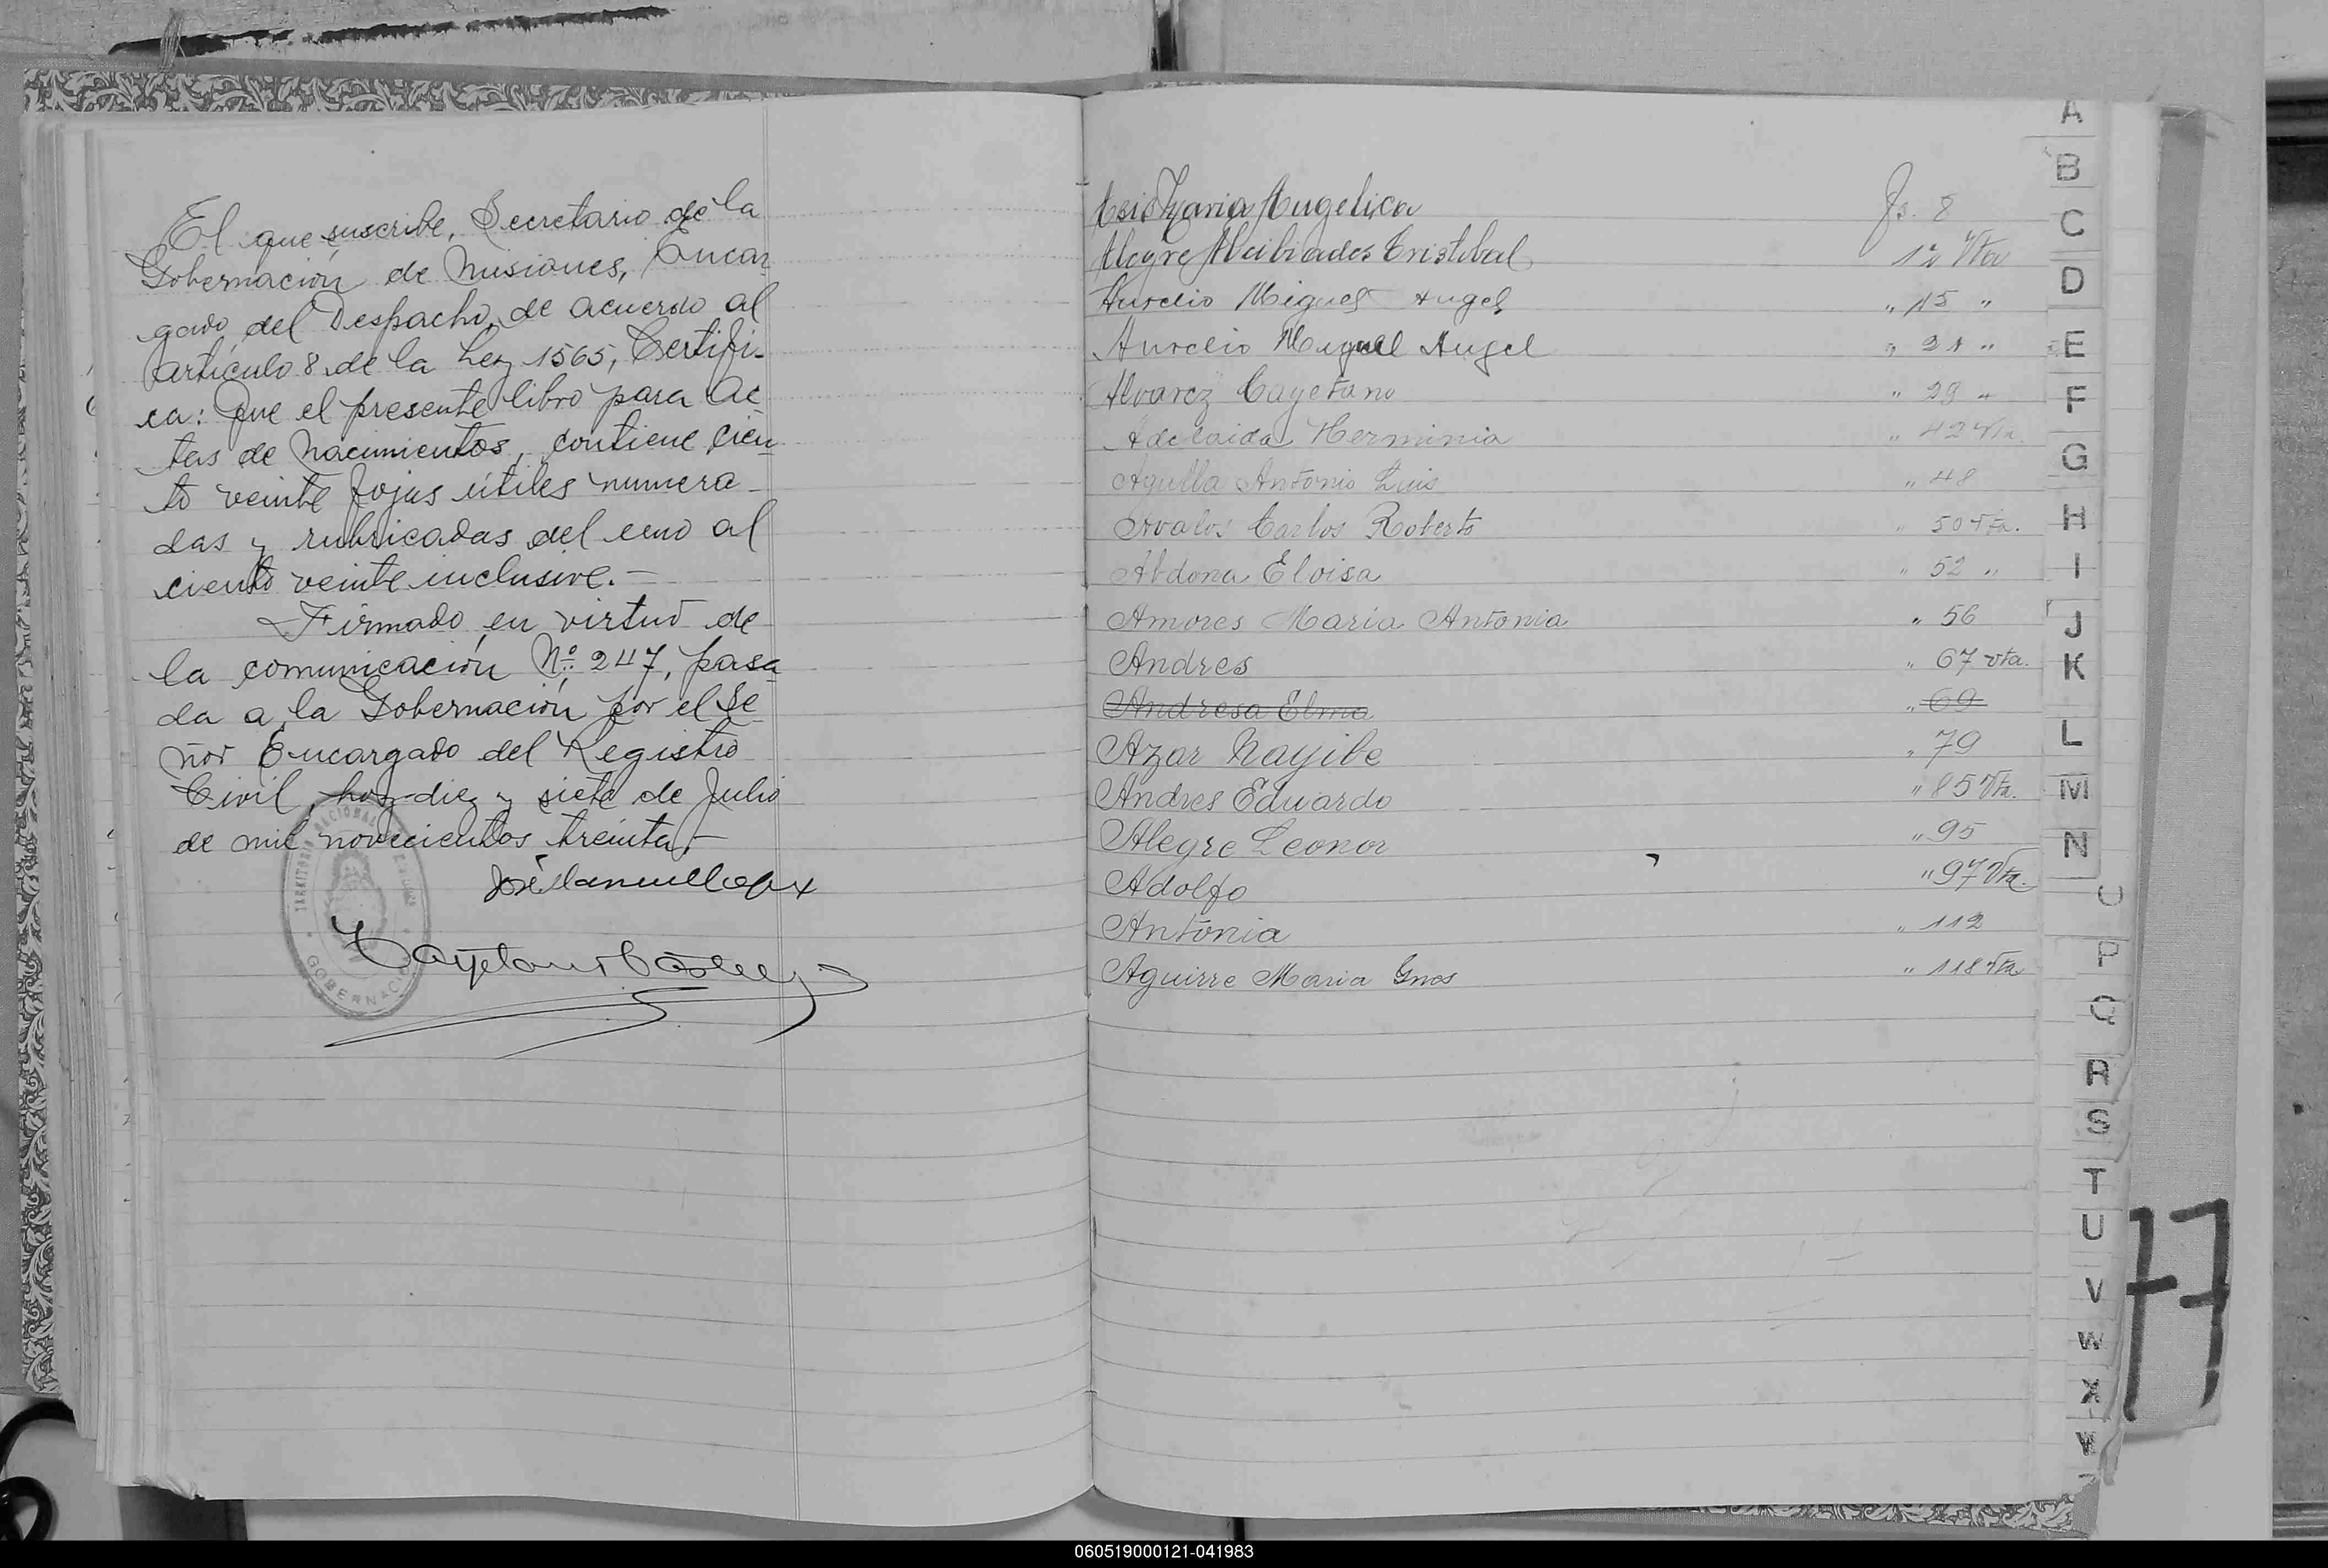 El que suscribe, Secretario de la
Gobernación de Misiones, Encar
gado del Despacho, de acuerdo al
artículo 8 de la Ley 1565, Certifi-
ca: Que el presente libro para Ac
tas de Nacimientos, contiene cien
to veinte fojas útiles numera-
das y rubricadas del uno al
ciento veinte inclusive.-
Firmado en virtud de
la comunicación Nº 247, pasa
da a la Gobernación por el Se-
ñor Encargado del Registro
Civil, hoy diez y siete de Julio
de mil novecientos treinta.-
José Manuel
TERRITORIO NACIONAL
GOBERNAC
Maria Angelica Fs. 8
Alegre Alcibiades Cristobal 12 Vta
Aurelio Miguel Angel " 15 "
Aurelio Miguel Angel " 21 "
Alvarez Cayetano " 29 "
Adelaida Herminia " 42 Vta.
Agulla Antonio Luis " 48
Avalos Carlos Roberto " 50 Vta.
Abdona Eloisa " 52 "
Amores Maria Antonia " 56
Andres " 67 vta.
Andresa Elma " 69
Azar Nayibe " 79
Andres Eduardo " 85 Vta.
Alegre Leonor " 95
Adolfo " 97 Vta.
Antonia " 112
Aguirre Maria Ines " 118 Vta
A
B
C
D
E
F
G
H
I
J
K
L
M
N
O
P
Q
R
S
T
U
V
W
X
Y
77
060519000121-041983